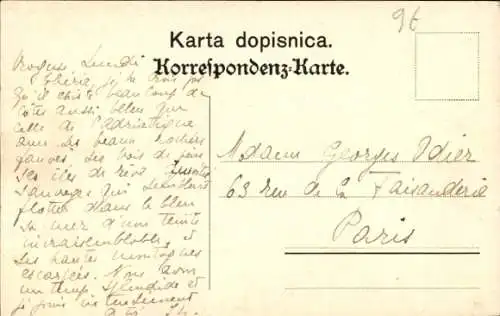 9t
Karta dopisnica.
Korrespondenz-Karte.
Raguse Lundi
chérie, je ne crois pas
qu'il existe beaucoup de
côtes aussi bleu que
celle de l'Adriatique
avec les beaux rochers
fauves les bois de pins
les îles de rêve
sauvages qui semblent
flotter dans le bleu
la mer d'une teinte
invraisemblable, et
les hautes montagnes
escarpées. Nous avons
un temps splendide et
je jouis intensément
Madame Georges Odier
63 rue de la Faisanderie
Paris